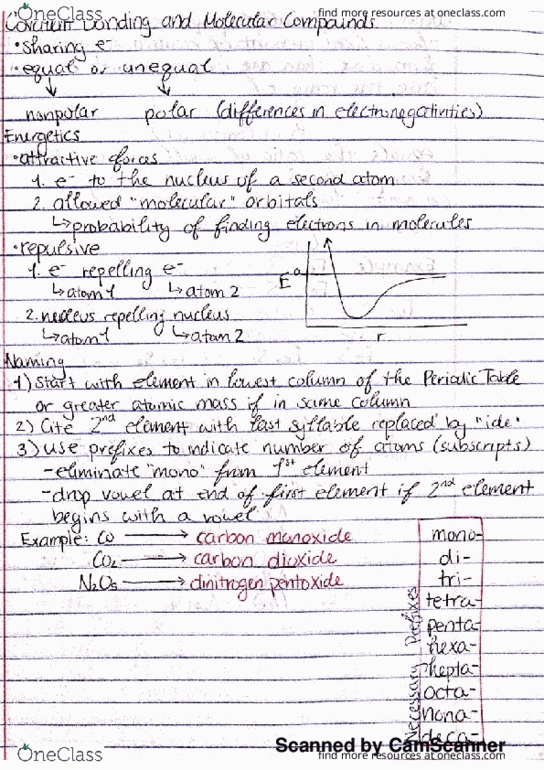 OneClass
find more resources at oneclass.com
find more resources at oneclass.com
Covalent Bonding and Molecular Compounds
•sharing e⁻
•equal or unequal
nonpolar polar (differences in electronegativities)
Energetics
•attractive forces
1. e⁻ to the nucleus of a second atom
2. allowed "molecular" orbitals
↳probability of finding electrons in molecules
•repulsive
1. e⁻ repelling e⁻
↳atom 1 ↳atom 2
2. nucleus repelling nucleus
↳atom 1 ↳atom 2
E 0
r
Naming
1) Start with element in lowest column of the Periodic Table
or greater atomic mass if in same column
2) Cite 2nd element with last syllable replaced by "ide"
3) use prefixes to indicate number of atoms (subscripts)
-eliminate "mono" from 1st element
-drop vowel at end of first element if 2nd element
begins with a vowel
Example: CO → carbon monoxide
CO₂ → carbon dioxide
N₂O₅ → dinitrogen pentoxide
Necessary Prefixes
mono-
di-
tri-
tetra-
penta-
hexa-
hepta-
octa-
nona-
deca-
OneClass
Scanned by CamScanner
find more resources at oneclass.com